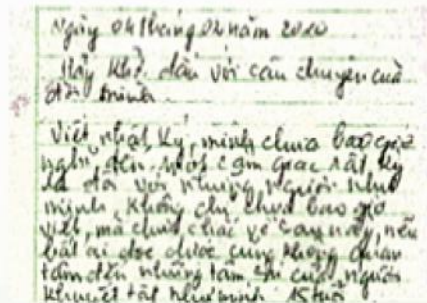 Ngày 04 tháng 02 năm 2010
Hãy khởi đầu với câu chuyện của
đời mình.
Viết nhật ký, mình chưa bao giờ
nghĩ đến. Một cảm giác rất kỳ
lạ đối với những người như
mình. Không chỉ chưa bao giờ
viết, mà chưa chắc về sau này, nếu
bất ai đọc được cũng không quan
tâm đến những tâm sự của người
khuyết tật như mình. 15 tuổi